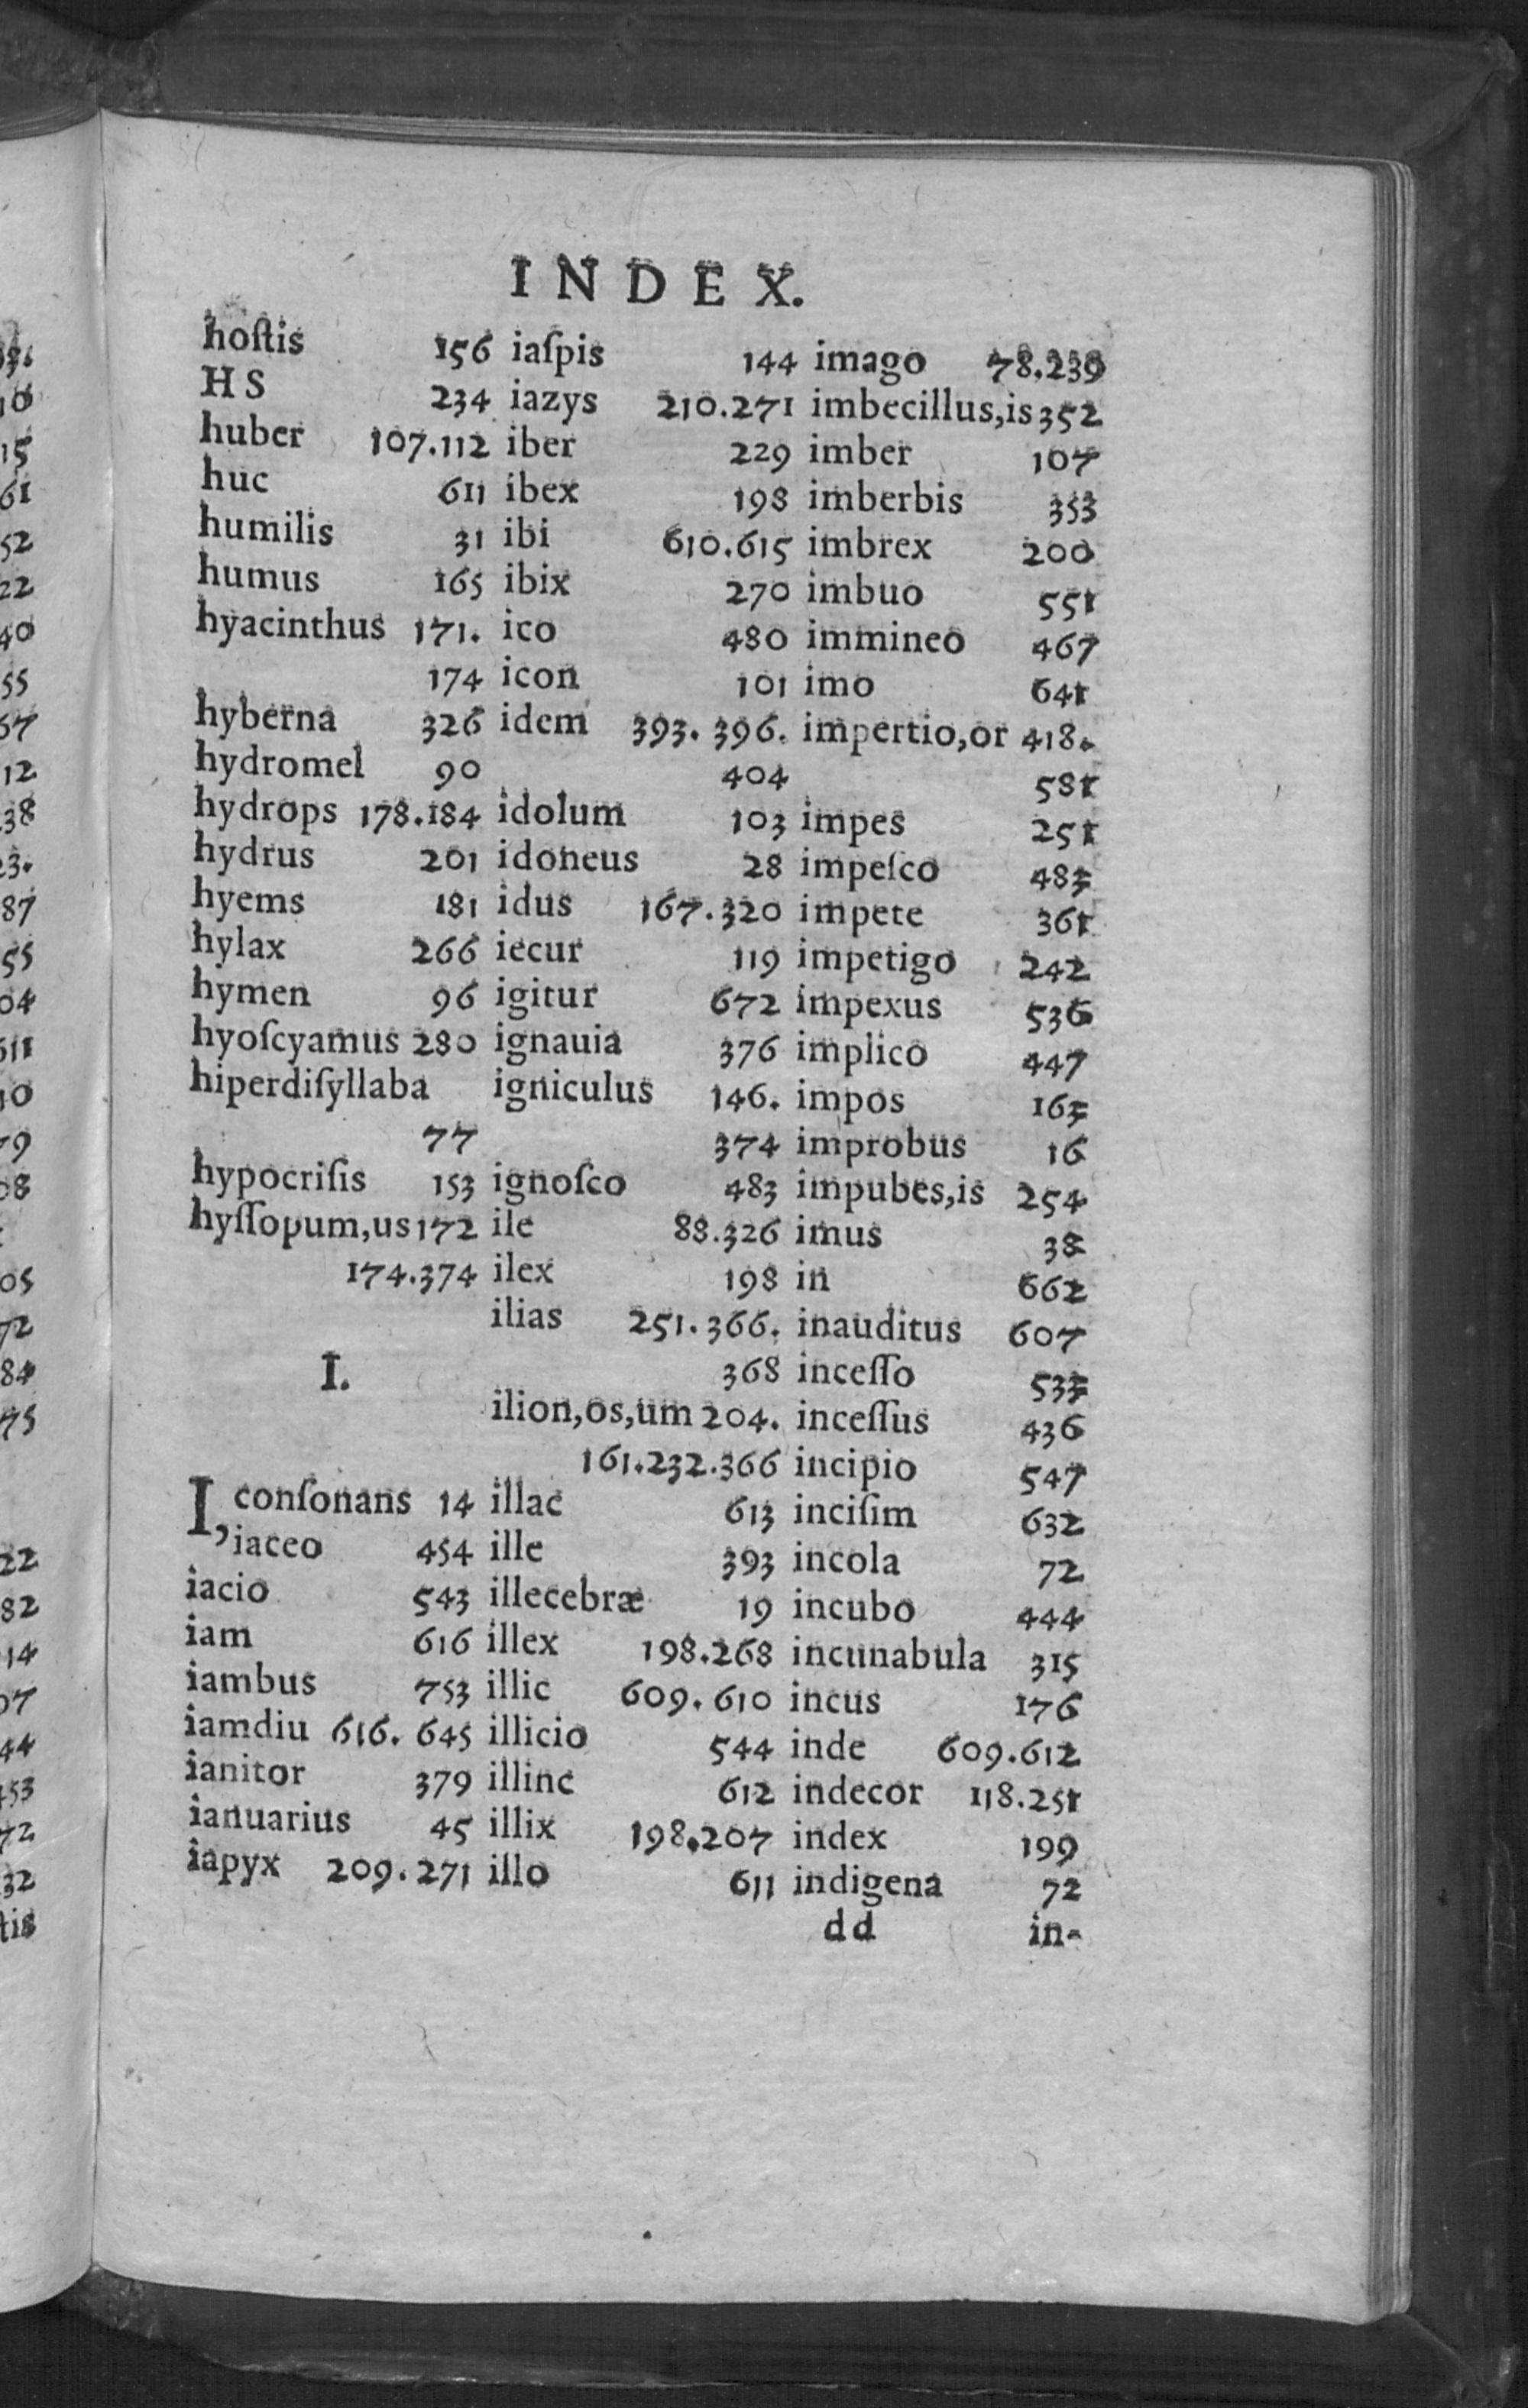 INDEX.
hoſtis 156
HS 234
huber 107.112
huc 611
humilis 31
humus 165
hyacinthus 171.
174
hyberna 326
hydromel 90
hydrops 178.184
hydrus 201
hyems 181
hylax 266
hymen 96
hyoſcyamus 280
hiperdiſyllaba
77
hypocriſis 153
hyſſopum,us 172
174.374
I.
I, conſonans 14
iaceo 454
iacio 543
iam 616
iambus 753
iamdiu 616. 645
ianitor 379
ianuarius 45
iapyx 209.271
iaſpis 144
iazys 210.271
iber 229
ibex 198
ibi 610.615
ibix 270
ico 480
icon 101
idem 393. 396.
404
idolum 103
idoneus 28
idus 167.320
iecur 119
igitur 672
ignauia 376
igniculus 146.
374
ignoſco 483
ile 88.326
ilex 198
ilias 251.366.
368
ilion,os,um 204.
161.232.366
illac 613
ille 393
illecebræ 19
illex 198.268
illic 609. 610
illicio 544
illinc 612
illix 198.207
illo 611
imago 78.239
imbecillus,is 352
imber 107
imberbis 353
imbrex 200
imbuo 551
immineo 467
imo 641
impertio,or 418.
581
impes 251
impeſco 483
impete 361
impetigo 242
impexus 536
implico 447
impos 163
improbus 16
impubes,is 254
imus 38
in 662
inauditus 607
inceſſo 533
inceſſus 436
incipio 547
inciſim 632
incola 72
incubo 444
incunabula 315
incus 176
inde 609.612
indecor 118.251
index 199
indigena 72
dd in-